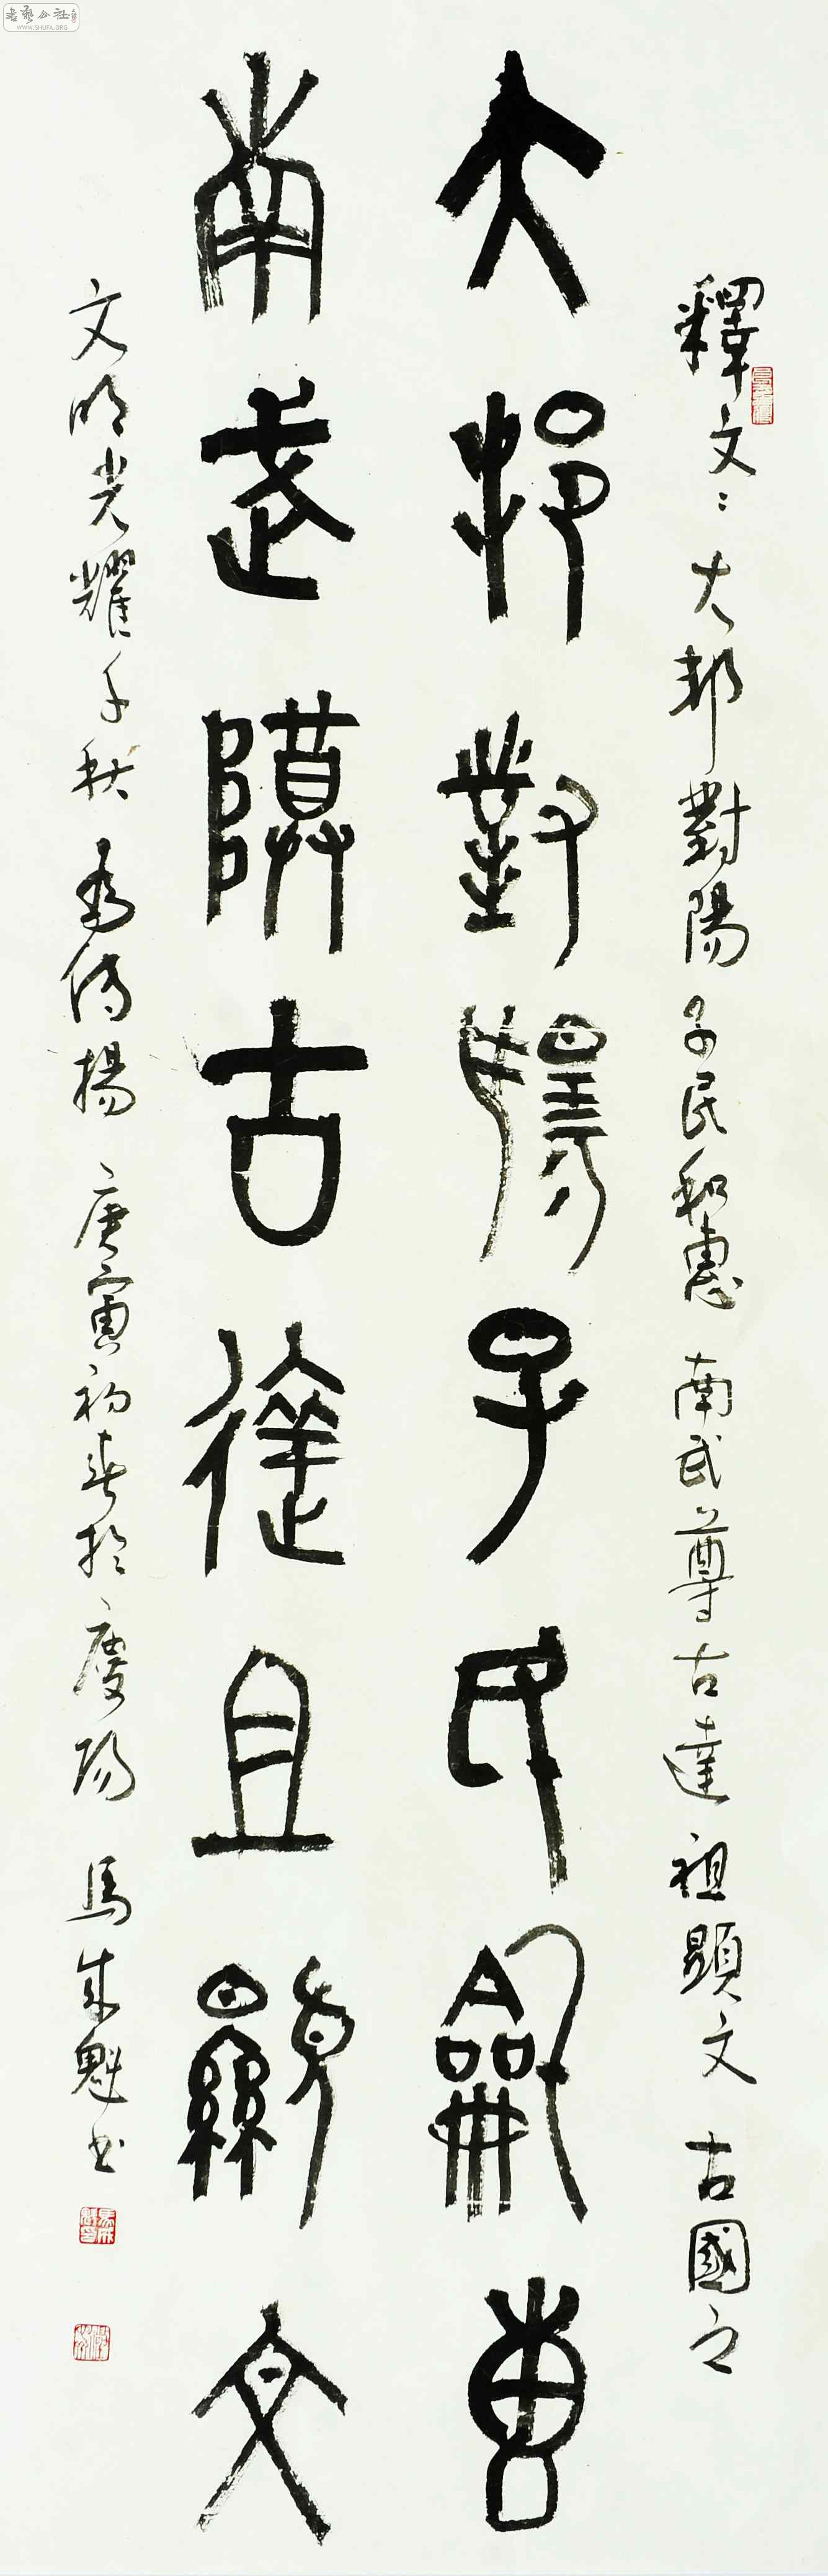 釋文：大邦對陽子民和惠南武尊古達祖顯文古國之
大邦對揚子民龢惠
南武尊古達且顯文
文明光耀千秋為傳揚庚寅初春於慶陽馬成魁書
書藝公社
WWW.SHUFA.ORG